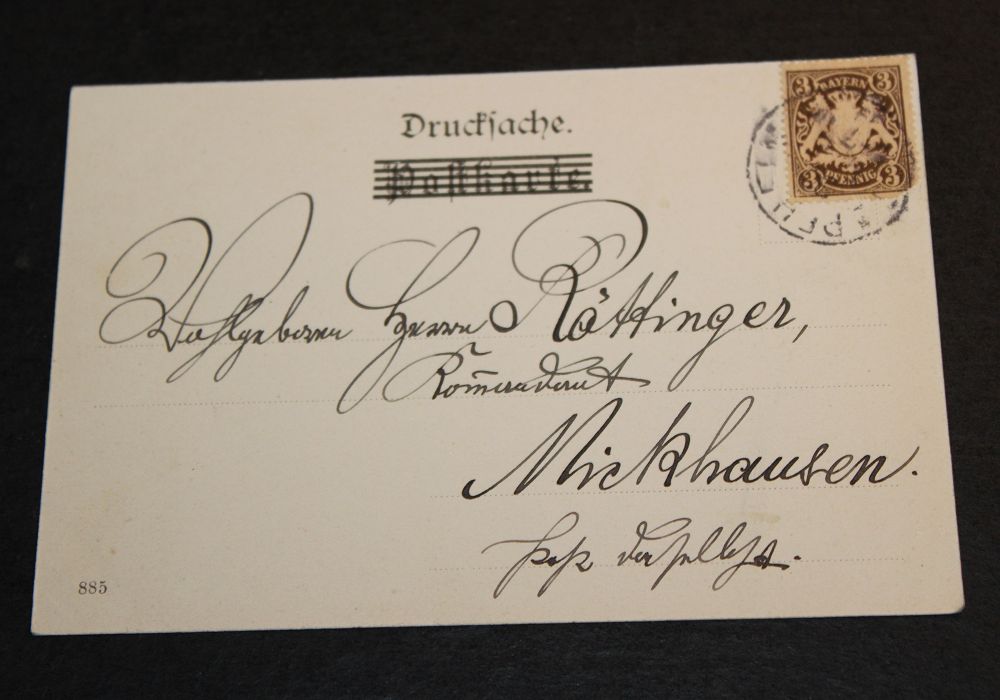 Drucksache.
Postkarte.
3 BAYERN 3
3 PFENNIG 3
Wohlgeboren Herrn Röttinger,
Kommandant
Mickhausen.
Post daselbst.
885